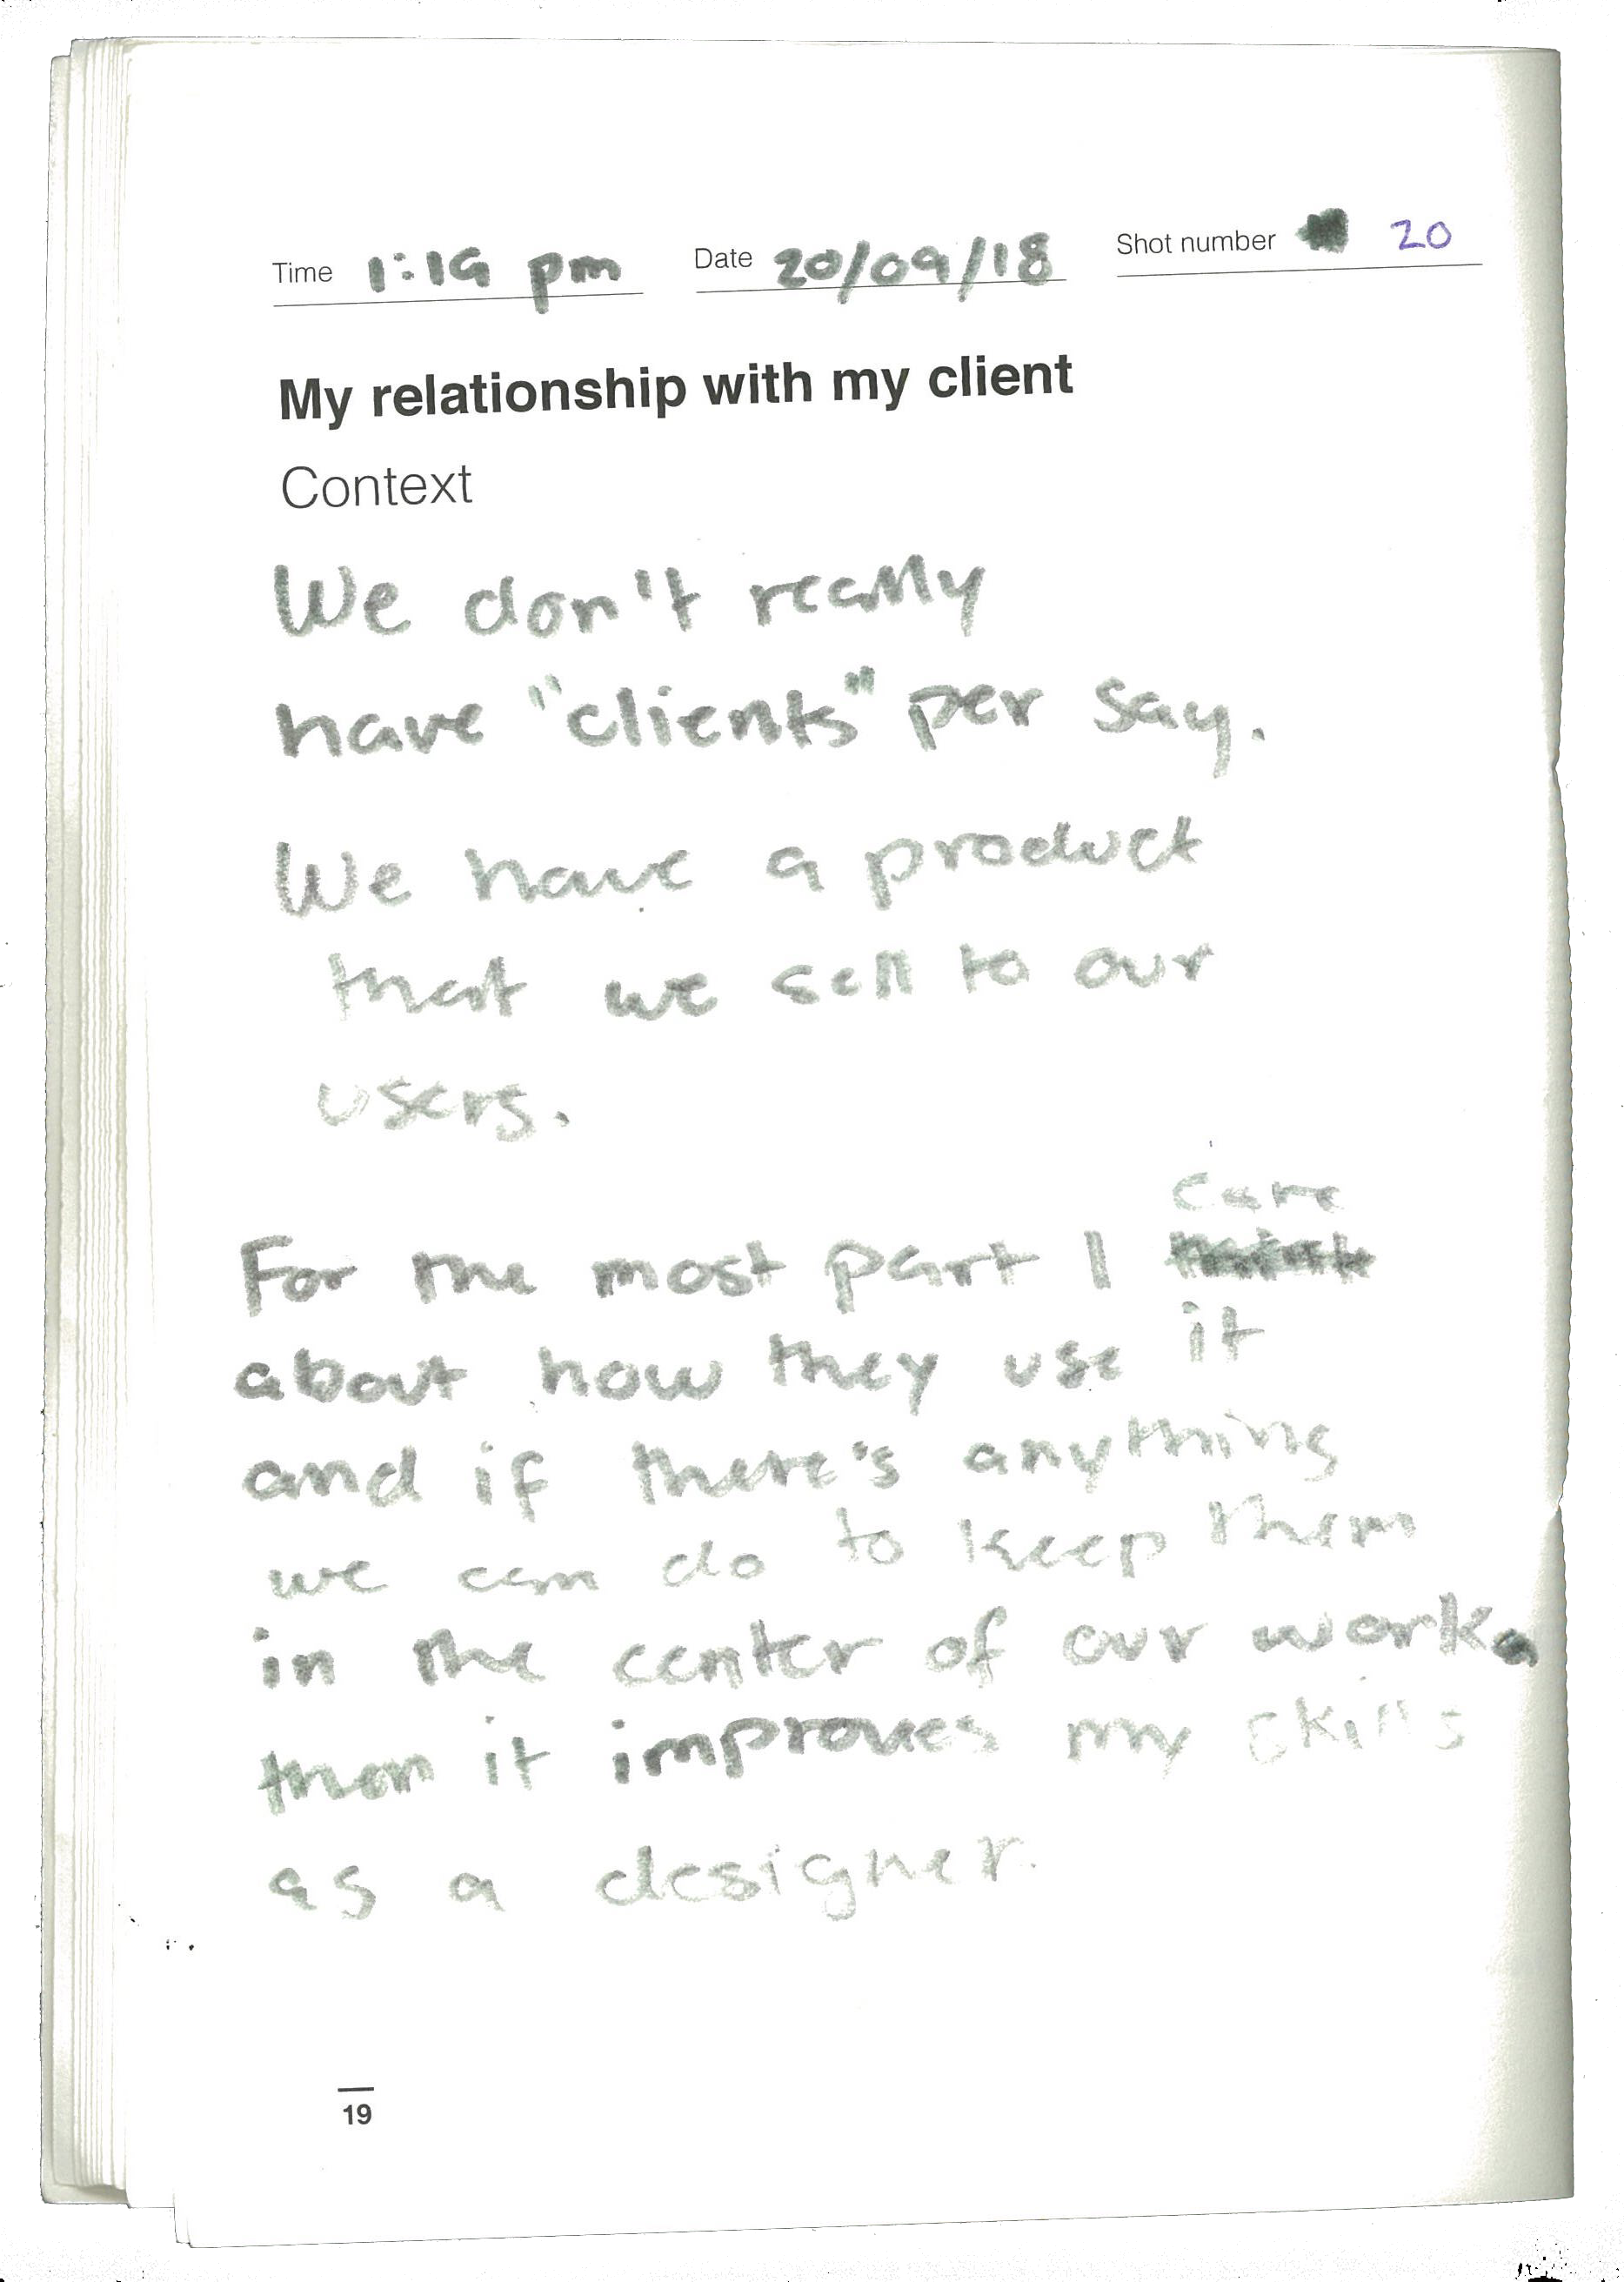 Time 1:19 pm Date 20/09/18 Shot number 20
My relationship with my client
Context
We don't really
have "clients" per say.
We have a product
that we sell to our
users.
care
For the most part I
about how they use it
and if there's anything
we can do to keep them
in the center of our work.
then it improves my skills
as a designer.
19